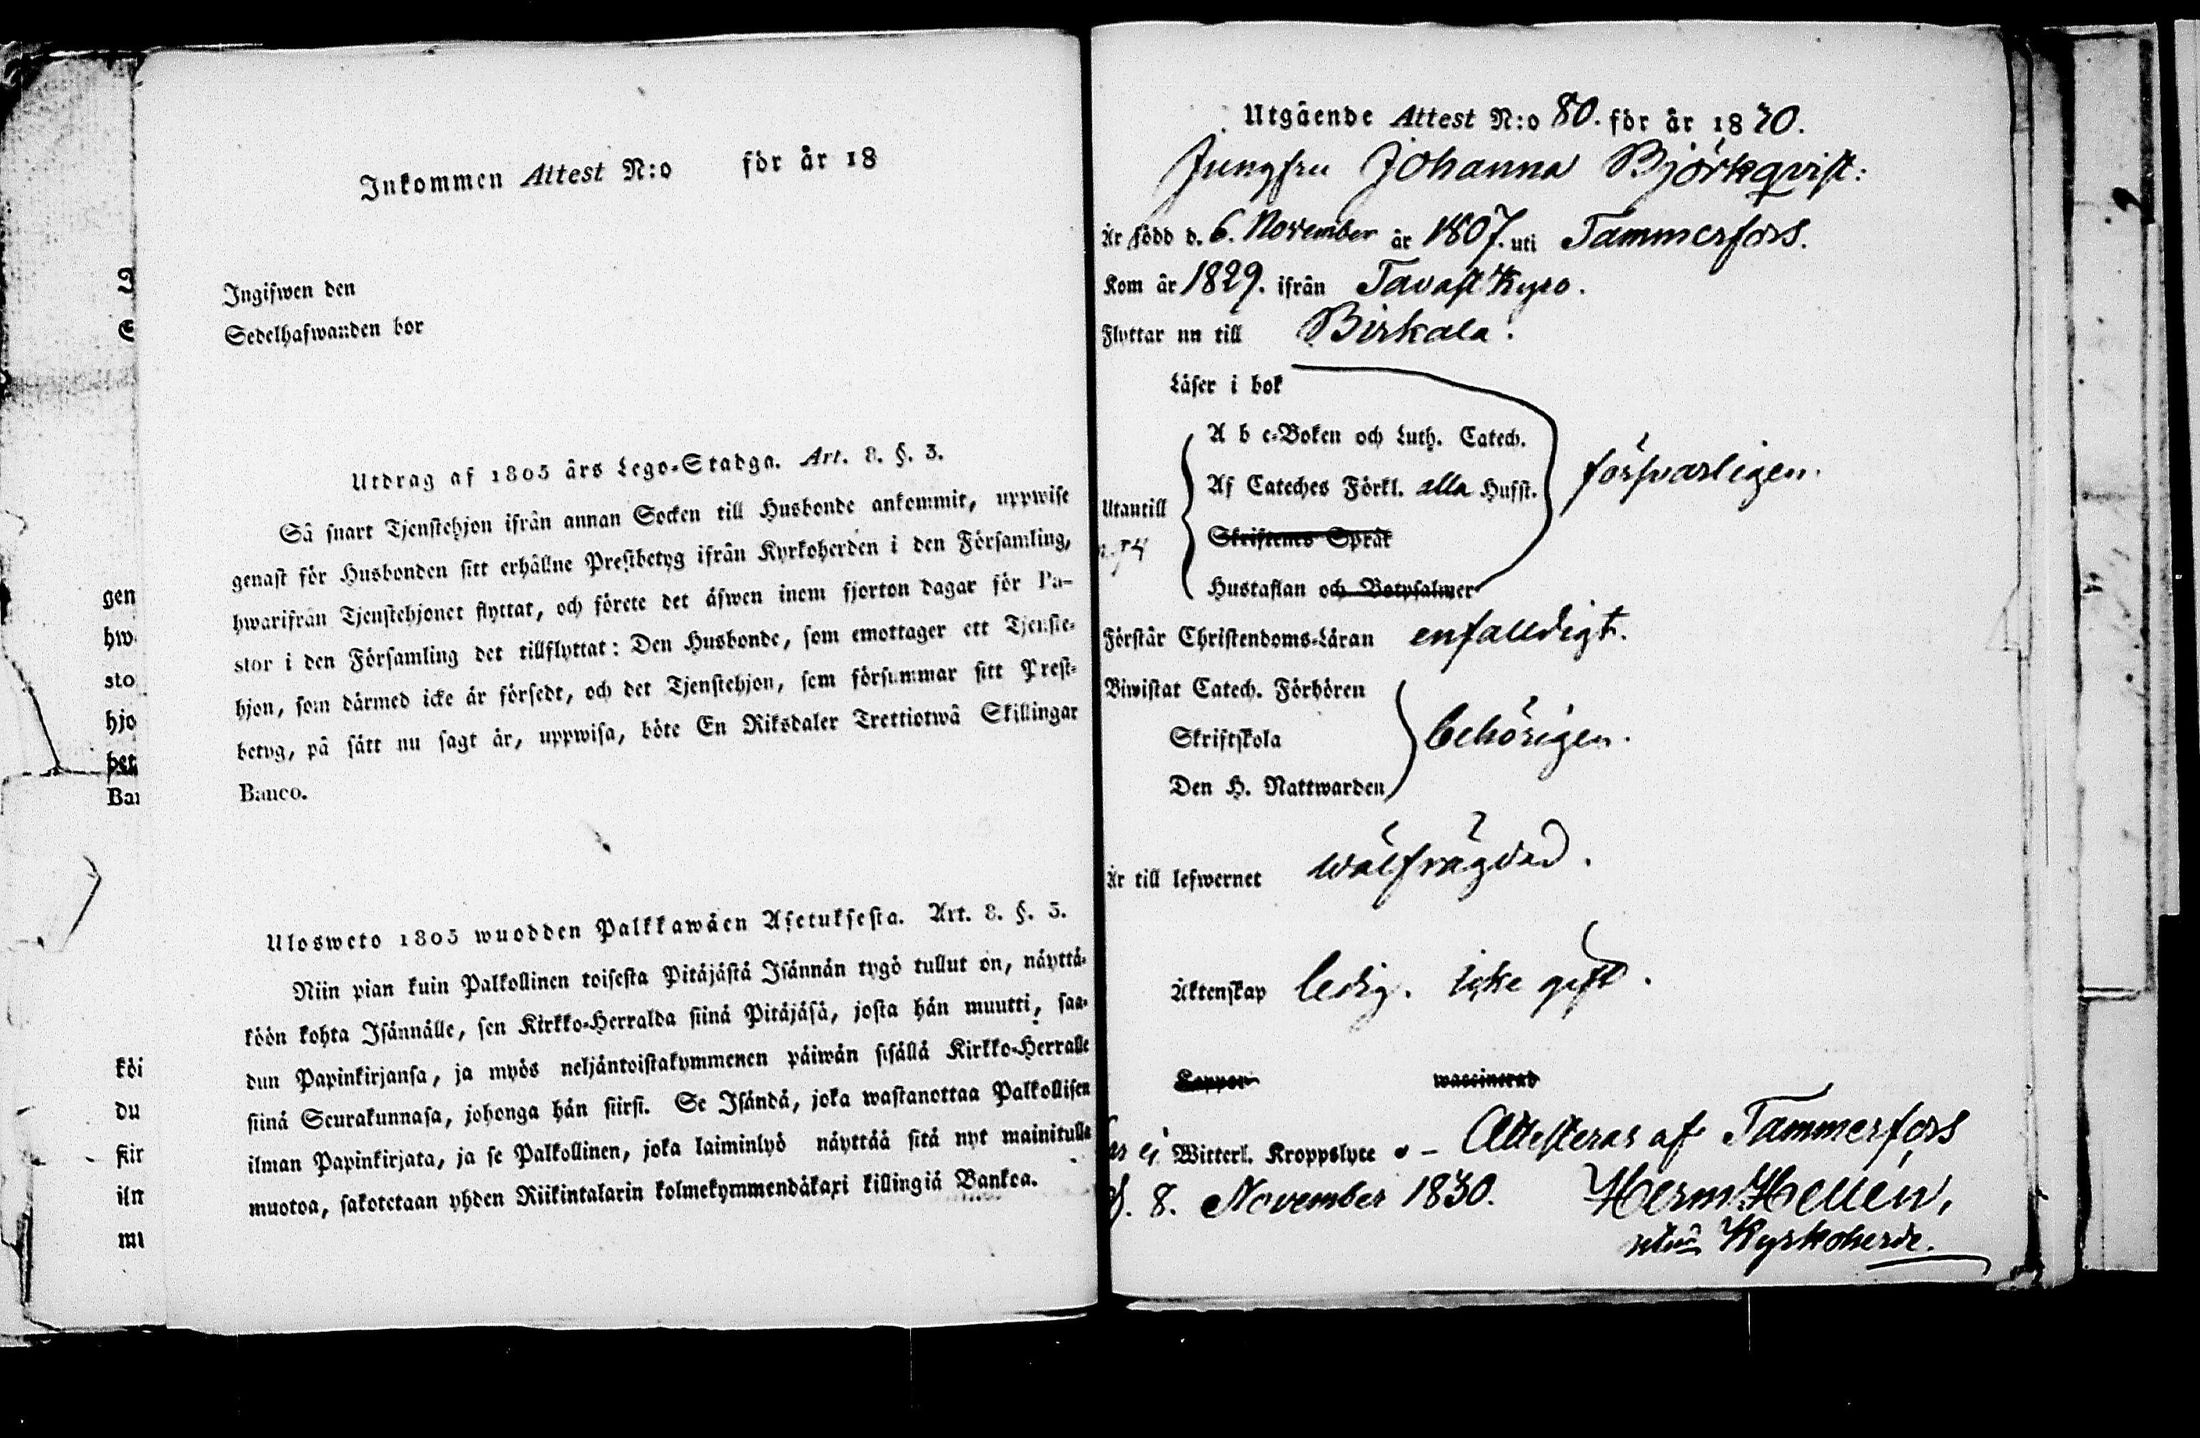 Inkommen Attest N:o för år 18
Ingifwen den
Sedelhafwanden bor
Utdrag af 1805 års Lego-Stadga. Art. 8. §. 3.
Så snart Tjenstehjon ifrån annan Socken till Husbonde ankommit, uppwise
genast för Husbonden sitt erhållne Prestbetyg ifrån Kyrkoherden i den Församling,
hwarifrån Tjenstehjonet flyttat, och förete det äfwen inom fjorton dagar för Pa-
stor i den Församling det tillflyttat: Den Husbonde, som emottager ett Tjenste-
hjon, som därmed icke är försedt, och det Tjenstehjon, som försummar sitt Prest-
betyg, på sätt nu sagt är, uppwisa, böte En Riksdaler Trettiotwå Skillingar
Banco.
Ulosweto 1805 wuodden Palkkawäen Asetuksesta. Art. 8. §. 3.
Niin pian kuin Palkollinen toisesta Pitäjästä Isännän tygö tullut on, näyttä-
köön kohta Isännälle, sen Kirkko-Herralda siinä Pitäjäsä, josta hän muutti, saa-
dun Papinkirjansa, ja myös neljäntoistakymmenen päiwän sisällä Kirkko-Herralle
siinä Seurakunnasa, johonga hän siirsi. Se Isändä, joka wastanottaa Palkollisen
ilman Papinkirjata, ja se Palkollinen, joka laiminlyö näyttää sitä nyt mainitulla
muotoa, sakotetaan yhden Riikintalarin kolmekymmendäkaxi killingiä Bankoa.
Utgående Attest N:o 80. för år 1830.
Jungfru Johanna Björkqvist:
Är född d. 6. November år 1807. uti Tammerfors.
Kom år 1829. ifrån Tavast Kyro.
Flyttar nu till Birkala.
Läser i bok
A b c-Boken och Luth. Catech.
Af Cateches Förkl. alla Husst. försvarligen.
Utantill
Skriftenes Språk
Hustaflan och Botpsalmer
Förstår Christendoms-Läran enfaldigt.
Biwistat Catech. Förhören
Skriftskola behörigen.
Den H. Nattwarden
Är till lefwernet wälfrägdad.
Äktenskap ledig. icke gift.
Koppor waccinerad
ej Witterl. Kroppslyte – Attesteras af Tammerfors
d. 8. November 1830. Herm. Hellén,
Kyrkoherde.